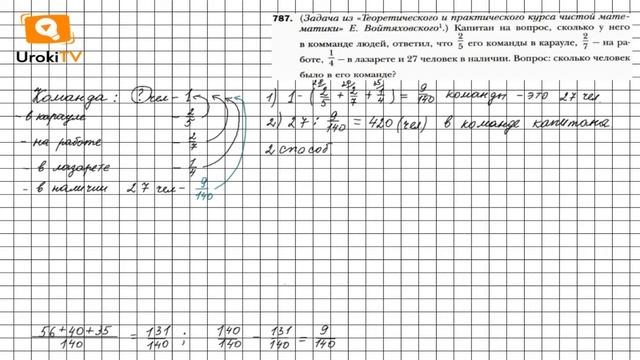 UrokiTV
787. (Задача из «Теоретического и практического курса чистой мате-
матики» Е. Войтяховского¹.) Капитан на вопрос, сколько у него
в комманде людей, ответил, что 2/5 его команды в карауле, 2/7 — на ра-
боте, 1/4 — в лазарете и 27 человек в наличии. Вопрос: сколько человек
было в его команде?
Команда: ? чел - 1
- в карауле - 2/5
- на работе - 2/7
- в лазарете - 1/4
- в наличии 27 чел - 9/140
1) 1 - (2/5 + 2/7 + 1/4) = 9/140 команды - это 27 чел
2) 27 : 9/140 = 420 (чел) в команде капитана
2 способ
56+40+35/140 = 131/140 ; 140/140 - 131/140 = 9/140